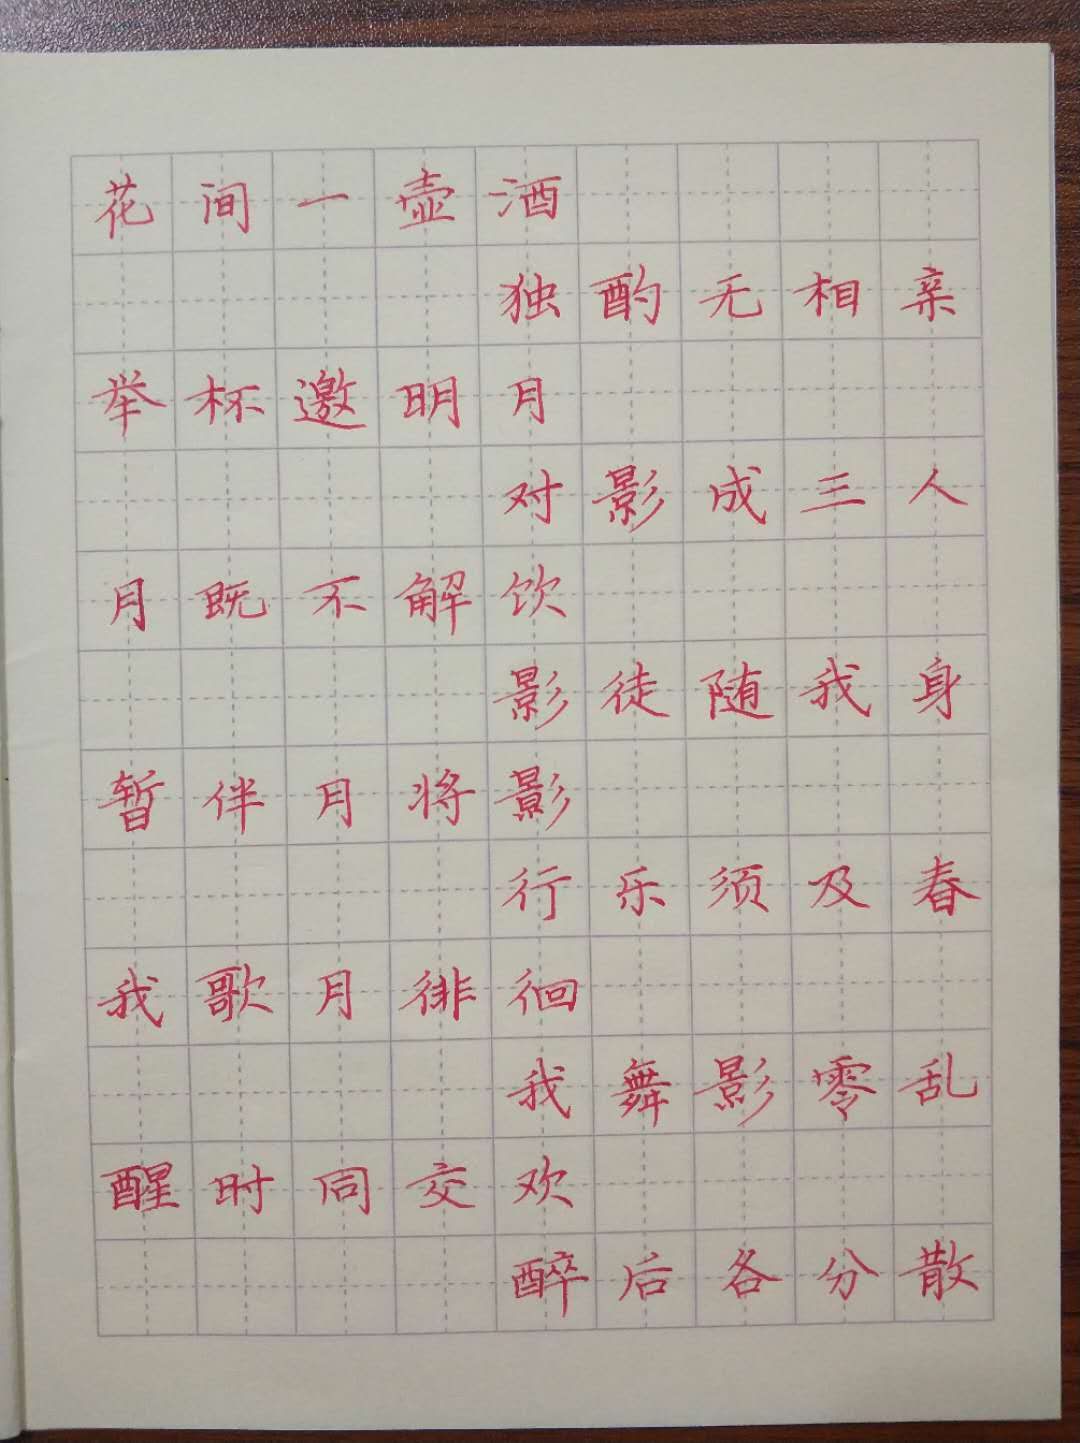 花间一壶酒
独酌无相亲
举杯邀明月
对影成三人
月既不解饮
影徒随我身
暂伴月将影
行乐须及春
我歌月徘徊
我舞影零乱
醒时同交欢
醉后各分散